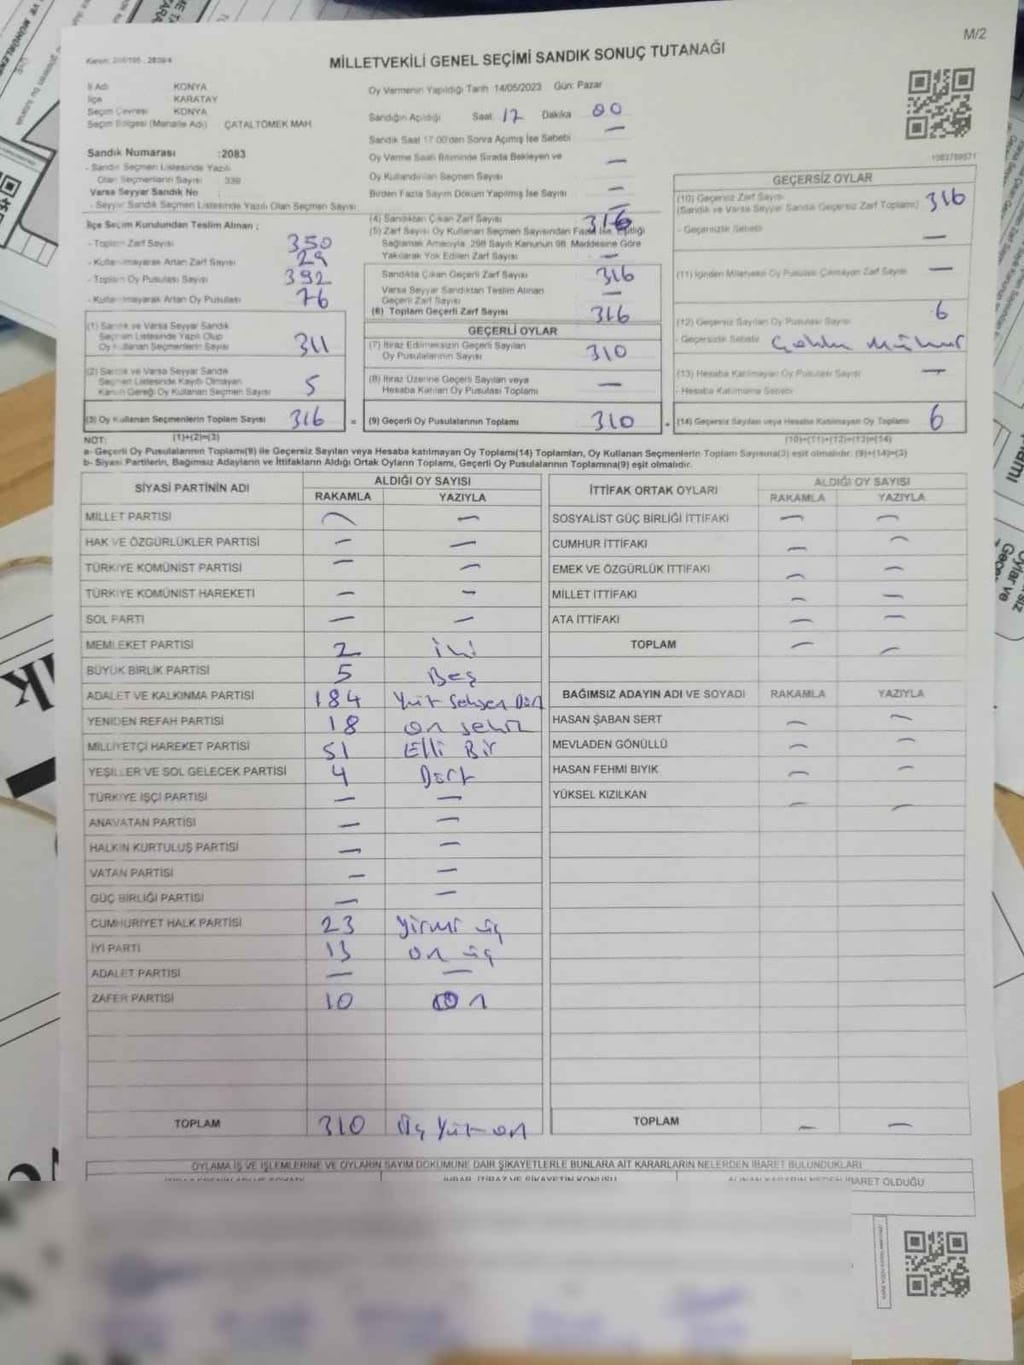 M/2
MİLLETVEKİLİ GENEL SEÇİMİ SANDIK SONUÇ TUTANAĞI
İl Adı KONYA
İlçe KARATAY
Seçim Çevresi KONYA
Seçim Bölgesi (Mahalle Adı) ÇATALTÖMEK MAH.
Oy Vermenin Yapıldığı Tarih 14/05/2023 Gün: Pazar
Sandığın Açıldığı Saat 17 Dakika 00
Sandık Saat 17:00'den Sonra Açılmış İse Sebebi —
Oy Verme Saati Bitiminde Sırada Bekleyen ve
Oy Kullandırılan Seçmen Sayısı —
Birden Fazla Sayım Döküm Yapılmış İse Sayısı —
Sandık Numarası :2083
- Sandık Seçmen Listesinde Yazılı
Olan Seçmenlerin Sayısı : 339
Varsa Seyyar Sandık No :
- Seyyar Sandık Seçmen Listesinde Yazılı Olan Seçmen Sayısı
İlçe Seçim Kurulundan Teslim Alınan ;
- Toplam Zarf Sayısı 350
- Kullanılmayarak Artan Zarf Sayısı 29
- Toplam Oy Pusulası Sayısı 392
- Kullanılmayarak Artan Oy Pusulası 76
(1) Sandık ve Varsa Seyyar Sandık
Seçmen Listesinde Yazılı Olup
Oy Kullanan Seçmenlerin Sayısı 311
(2) Sandık ve Varsa Seyyar Sandık
Seçmen Listesinde Kaydı Olmayan
Kanun Gereği Oy Kullanan Seçmen Sayısı 5
(3) Oy Kullanan Seçmenlerin Toplam Sayısı 316 =
(4) Sandıktan Çıkan Zarf Sayısı 316
(5) Zarf Sayısı Oy Kullanan Seçmen Sayısından Fazla İse, Eşitliği
Sağlamak Amacıyla 298 Sayılı Kanunun 98. Maddesine Göre
Yakılarak Yok Edilen Zarf Sayısı —
Sandıkta Çıkan Geçerli Zarf Sayısı 316
Varsa Seyyar Sandıktan Teslim Alınan
Geçerli Zarf Sayısı —
(6) Toplam Geçerli Zarf Sayısı 316
GEÇERLİ OYLAR
(7) İtiraz Edilmeksizin Geçerli Sayılan
Oy Pusulalarının Sayısı 310
(8) İtiraz Üzerine Geçerli Sayılan veya
Hesaba Katılan Oy Pusulası Toplamı —
(9) Geçerli Oy Pusulalarının Toplamı 310 +
GEÇERSİZ OYLAR
(10) Geçersiz Zarf Sayısı
(Sandık ve Varsa Seyyar Sandık Geçersiz Zarf Toplamı) 316
- Geçersizlik Sebebi —
(11) İçinden Milletvekili Oy Pusulası Çıkmayan Zarf Sayısı —
(12) Geçersiz Sayılan Oy Pusulası Sayısı 6
- Geçersizlik Sebebi Çoklu Mühür
(13) Hesaba Katılmayan Oy Pusulası Sayısı —
- Hesaba Katılmama Sebebi
(14) Geçersiz Sayılan veya Hesaba Katılmayan Oy Toplamı 6
NOT: (1)+(2)=(3) (10)+(11)+(12)+(13)=(14)
a- Geçerli Oy Pusulalarının Toplamı(9) ile Geçersiz Sayılan veya Hesaba katılmayan Oy Toplamı(14) Toplamları, Oy Kullanan Seçmenlerin Toplam Sayısına(3) eşit olmalıdır. (9)+(14)=(3)
b- Siyasi Partilerin, Bağımsız Adayların ve İttifakların Aldığı Ortak Oyların Toplamı, Geçerli Oy Pusulalarının Toplamına(9) eşit olmalıdır.
SİYASİ PARTİNİN ADI ALDIĞI OY SAYISI
RAKAMLA YAZIYLA
MİLLET PARTİSİ — —
HAK VE ÖZGÜRLÜKLER PARTİSİ — —
TÜRKİYE KOMÜNİST PARTİSİ — —
TÜRKİYE KOMÜNİST HAREKETİ — —
SOL PARTİ — —
MEMLEKET PARTİSİ 2 iki
BÜYÜK BİRLİK PARTİSİ 5 Beş
ADALET VE KALKINMA PARTİSİ 184 Yüz Seksen Dört
YENİDEN REFAH PARTİSİ 18 on sekiz
MİLLİYETÇİ HAREKET PARTİSİ 51 Elli Bir
YEŞİLLER VE SOL GELECEK PARTİSİ 4 Dört
TÜRKİYE İŞÇİ PARTİSİ — —
ANAVATAN PARTİSİ — —
HALKIN KURTULUŞ PARTİSİ — —
VATAN PARTİSİ — —
GÜÇ BİRLİĞİ PARTİSİ — —
CUMHURİYET HALK PARTİSİ 23 Yirmi üç
İYİ PARTİ 13 on üç
ADALET PARTİSİ — —
ZAFER PARTİSİ 10 on
TOPLAM 310 Üç Yüz on
İTTİFAK ORTAK OYLARI ALDIĞI OY SAYISI
RAKAMLA YAZIYLA
SOSYALİST GÜÇ BİRLİĞİ İTTİFAKI — —
CUMHUR İTTİFAKI — —
EMEK VE ÖZGÜRLÜK İTTİFAKI — —
MİLLET İTTİFAKI — —
ATA İTTİFAKI — —
TOPLAM — —
BAĞIMSIZ ADAYIN ADI VE SOYADI RAKAMLA YAZIYLA
HASAN ŞABAN SERT — —
MEVLADEN GÖNÜLLÜ — —
HASAN FEHMİ BIYIK — —
YÜKSEL KIZILKAN — —
TOPLAM — —
OYLAMA İŞ VE İŞLEMLERİNE VE OYLARIN SAYIM DÖKÜMÜNE DAİR ŞİKAYETLERLE BUNLARA AİT KARARLARIN NELERDEN İBARET BULUNDUKLARI
İHBAR, İTİRAZ VE ŞİKAYETİN KONUSU
ALINAN KARARIN NEDEN İBARET OLDUĞU